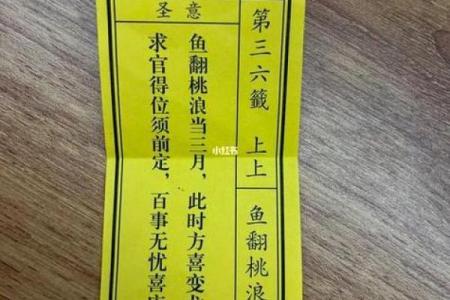 第三六籤 上上
鱼翻桃浪
圣意
鱼翻桃浪当三月，此时方喜变
求官得位须前定，百事无忧喜
小红书